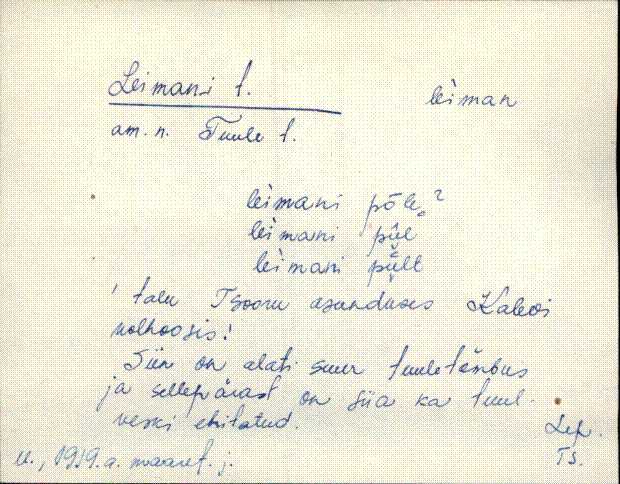 Leimani t. lèiman
am. n. Tuule t.
lèimani põle?
lèimani pǖl
lèimani pǜll
' talu Tsooru asunduses Kalevi
kolhoosis!
Siin on alati suur tuuletõmbus
ja sellepärast on siia ka tuul-
veski ehitatud.
Lep.
u., 1919.a. maaref. j. TS.